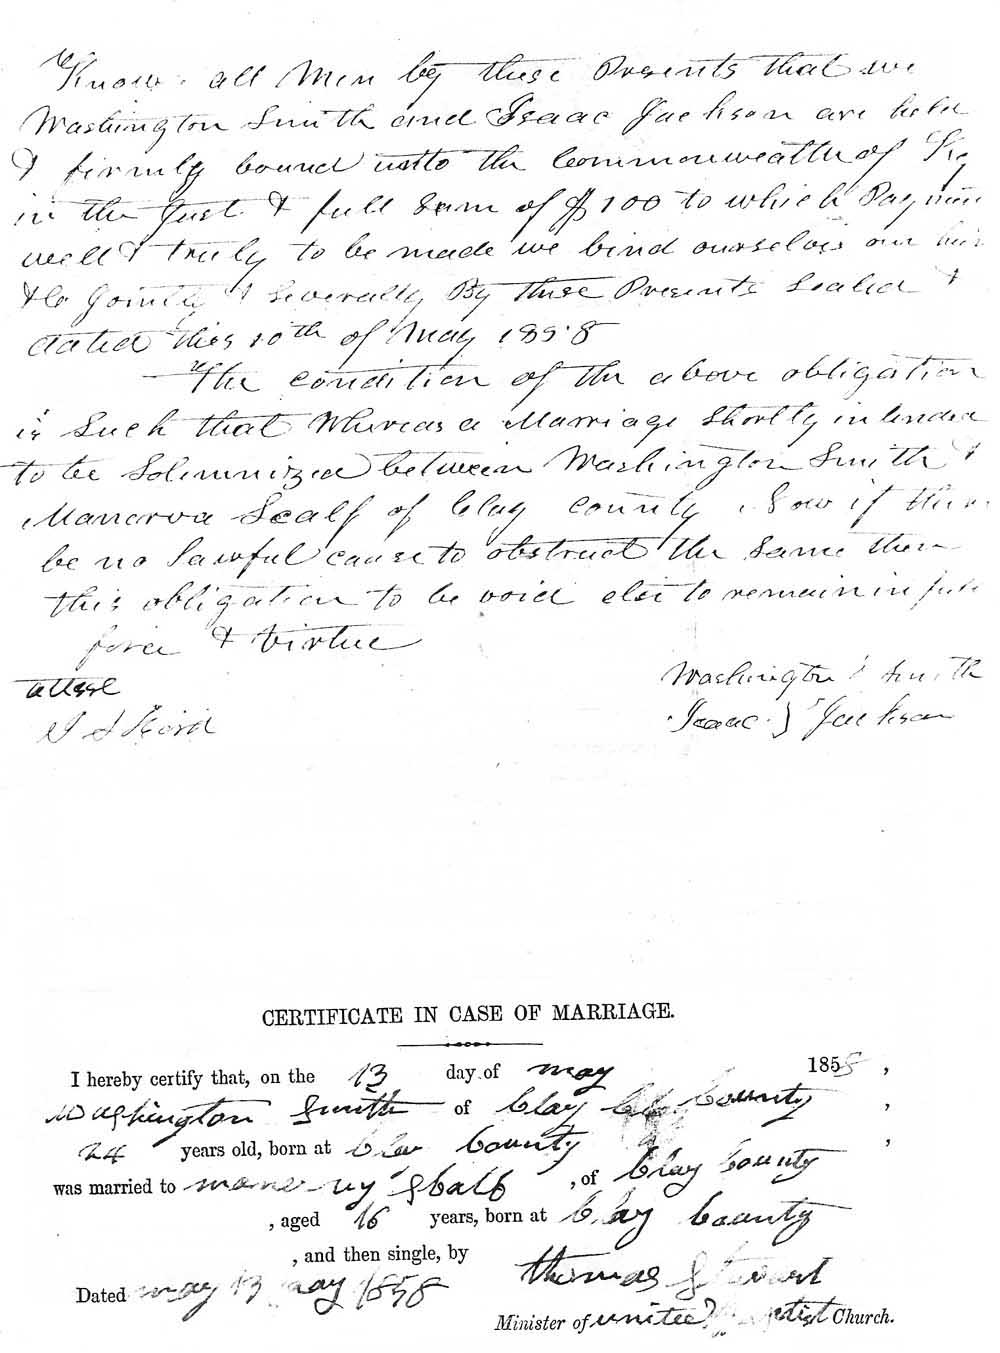 Know all Men by these Presents that we
Washington Smith and Isaac Jackson are held
& firmly bound unto the Commonwealth of Ky
in the Just & full Sum of $100 to which Payment
well & truly to be made we bind ourselves our heirs
&c Jointly & Severally By these Presents Sealed &
dated this 10th of May 1858
The condition of the above obligation
is Such that Whereas a Marriage Shortly intended
to be Solemnized between Washington Smith &
Manarva Scalf of Clay County Now if there
be no lawful cause to obstruct the Same then
this obligation to be void else to remain in full
force & Virtue
attest
Washington Smith
Isaac Jackson
CERTIFICATE IN CASE OF MARRIAGE.
I hereby certify that, on the 13 day of may 1858,
Washington Smith of Clay County,
24 years old, born at Clay County,
was married to Scalf, of Clay County
, aged 16 years, born at Clay County
, and then single, by
Thomas Stewart
Dated may 13 day 1858
Minister of united Baptist Church.